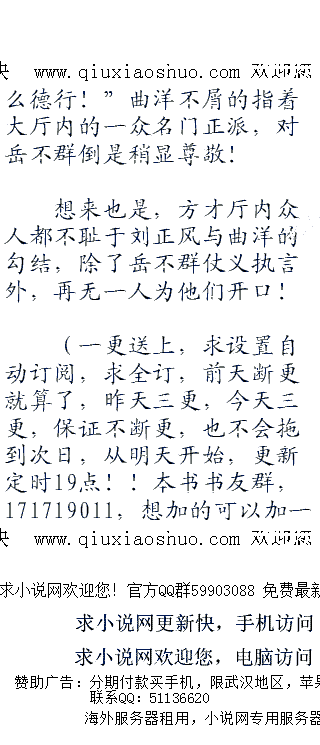 快 www.qiuxiaoshuo.com 欢迎您
么德行！”曲洋不屑的指着
大厅内的一众名门正派，对
岳不群倒是稍显尊敬！
想来也是，方才厅内众
人都不耻于刘正风与曲洋的
勾结，除了岳不群仗义执言
外，再无一人为他们开口！
（一更送上，求设置自
动订阅，求全订，前天断更
就算了，昨天三更，今天三
更，保证不断更，也不会拖
到次日，从明天开始，更新
定时19点！！本书书友群，
171719011，想加的可以加一
快 www.qiuxiaoshuo.com 欢迎您
求小说网欢迎您！官方QQ群59903088 免费最新
求小说网更新快，手机访问
求小说网欢迎您，电脑访问
赞助广告：分期付款买手机，限武汉地区，苹果
联系QQ：51136620
海外服务器租用，小说网专用服务器